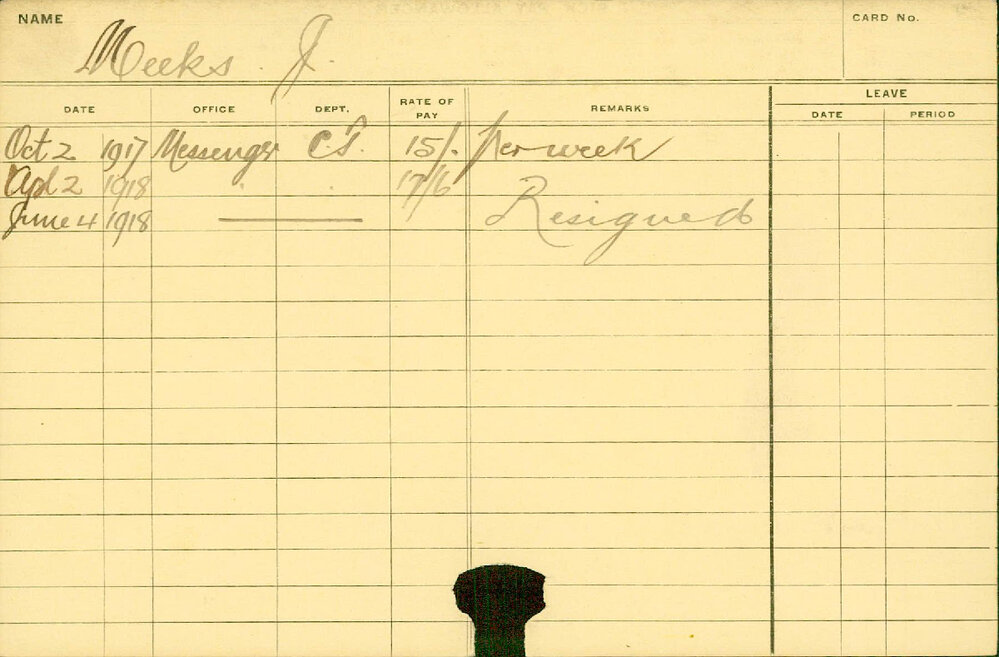 NAME CARD No.
Meeks. J.
LEAVE
DATE OFFICE DEPT. RATE OF PAY REMARKS DATE PERIOD
Oct 2 1917 Messenger C.T. 15/. per week
Apl 2 1918 " " 17/6
June 4 1918 Resigned